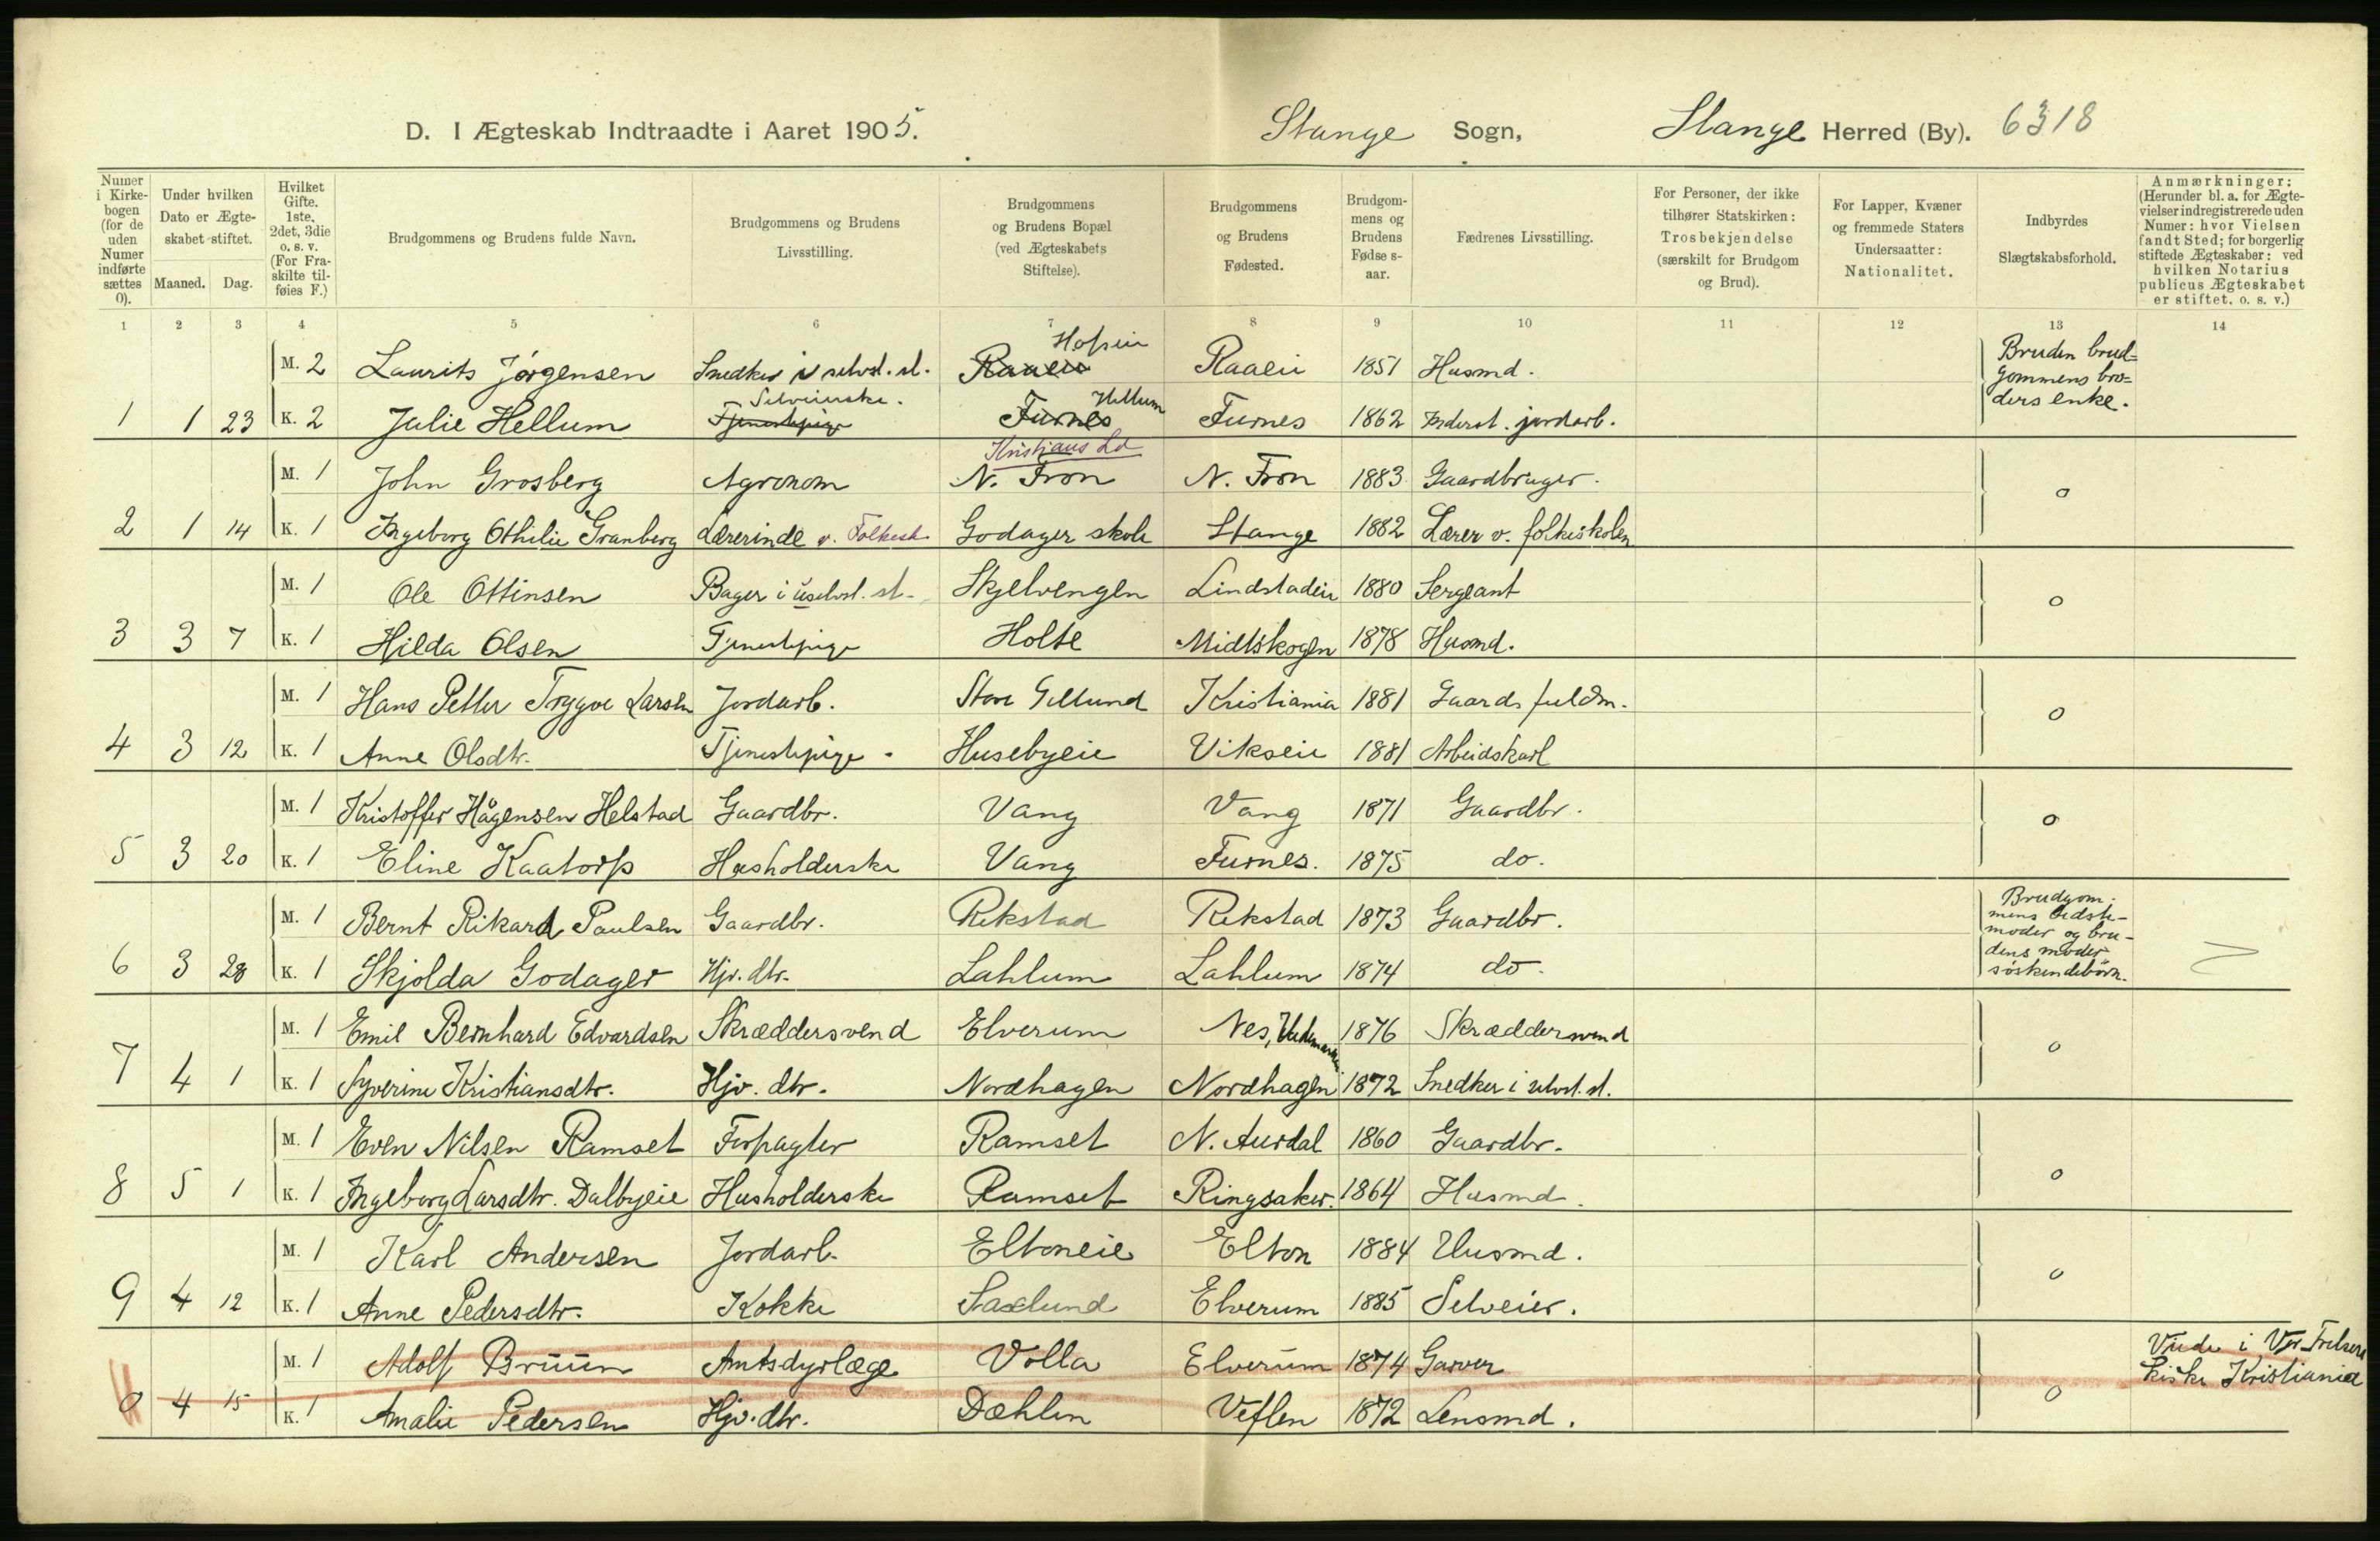 D. I Ægteskab Indtraadte i Aaret 1905. Stange Sogn, Stange Herred (By). 6318
Numer i Kirkebogen (for de uden Numer indførte sættes 0).
Under hvilken Dato er Ægteskabet stiftet.
Maaned. Dag.
Hvilket Gifte. 1ste, 2det, 3die o. s. v. (For Fraskilte tilføies F.)
Brudgommens og Brudens fulde Navn.
Brudgommens og Brudens Livsstilling.
Brudgommens og Brudens Bopæl (ved Ægteskabets Stiftelse).
Brudgommens og Brudens Fødested.
Brudgommens og Brudens Fødselsaar.
Fædrenes Livsstilling.
For Personer, der ikke tilhører Statskirken: Trosbekjendelse (særskilt for Brudgom og Brud).
For Lapper, Kvæner og fremmede Staters Undersaatter: Nationalitet.
Indbyrdes Slægtskabsforhold.
Anmærkninger: (Herunder bl. a. for Ægtevielser indregistrerede uden Numer: hvor Vielsen fandt Sted; for borgerlig stiftede Ægteskaber: ved hvilken Notarius publicus Ægteskabet er stiftet. o. s. v.)
1 2 3 4 5 6 7 8 9 10 11 12 13 14
M. 2 Laurits Jørgensen Snedker i selvst. st. Raaeie Raaeie 1851 Husmd. Bruden brudgommens broders enke.
1 1 23 K. 2 Julie Hellum Tjenestepige Furnes Hellum Furnes 1862 jordarb.
Kristians
M. 1 John Grosberg Agronom N. Fron N. Fron 1883 Gaardbruger. 0
2 1 14 K. 1 Ingeborg Othilie Granberg Lærerinde v. Folkesk. Godager skole Stange 1882 Lærer v. folkeskolen
M. 1 Ole Ottinsen Bager i uselvst. st. Skjelvengen Lindstadeie 1880 Sergeant 0
3 3 7 K. 1 Hilda Olsen Tjenestepige Holte Midtskogen 1878 Husmd.
M. 1 Hans Petter Trygve Larsen Jordarb. Store Gillund Kristiania 1881 Gaardsfuldm. 0
4 3 12 K. 1 Anne Olsdtr. Tjenestepige Husebyeie Vikseie 1881 Arbeidskarl
M. 1 Kristoffer Hågensen Helstad Gaardbr. Vang Vang 1871 Gaardbr. 0
5 3 20 K. 1 Eline Kaatorp Husholderske Vang Furnes. 1875 do.
M. 1 Bernt Rikard Paulsen Gaardbr. Rekstad Rekstad 1873 Gaardbr. Brudgommens bedstemoder og brudens moder søskendebørn.
6 3 28 K. 1 Skjolda Godager Hjv. dtr. Lahlum Lahlum 1874 do.
M. 1 Emil Bernhard Edvardsen Skræddersvend Elverum Nes, Hedemarken 1876 Skræddersvend 0
7 4 1 K. 1 Syverine Kristiansdtr. Hjv. dtr. Nordhagen Nordhagen 1872 Snedker i selvst. st.
M. 1 Even Nilsen Ramset Forpagter Ramset N. Aurdal 1860 Gaardbr. 0
8 5 1 K. 1 Ingeborg Larsdtr. Dalbyeie Husholderske Ramset Ringsaker. 1864 Husmd.
M. 1 Karl Andersen Jordarb. Eltoneie Elton 1884 Husmd. 0
9 4 12 K. 1 Anne Pedersdtr. Kokke Saxlund Elverum 1885 Selveier.
M. 1 Adolf Bruun Amtsdyrlæge Volla Elverum 1874 Garver 0 Viede i Vor Frelsers kirke Kristiania
0 4 15 K. 1 Amalie Pedersen Hjv. dtr. Dæhlen Veflen 1872 Lensmd.